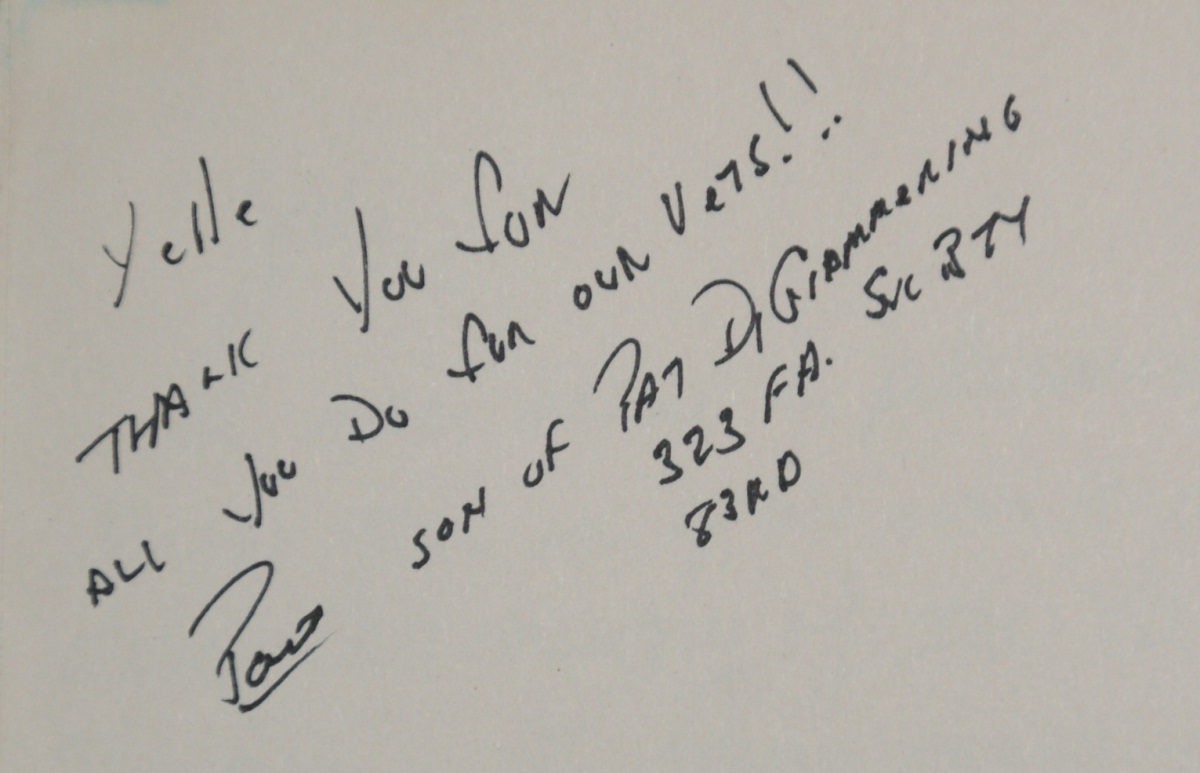 Yelle
THANK You FOR
ALL You Do FOR OUR VETS!!
SON OF PAT DiGIAMMERINO
323 FA. SVC BTY
83RD